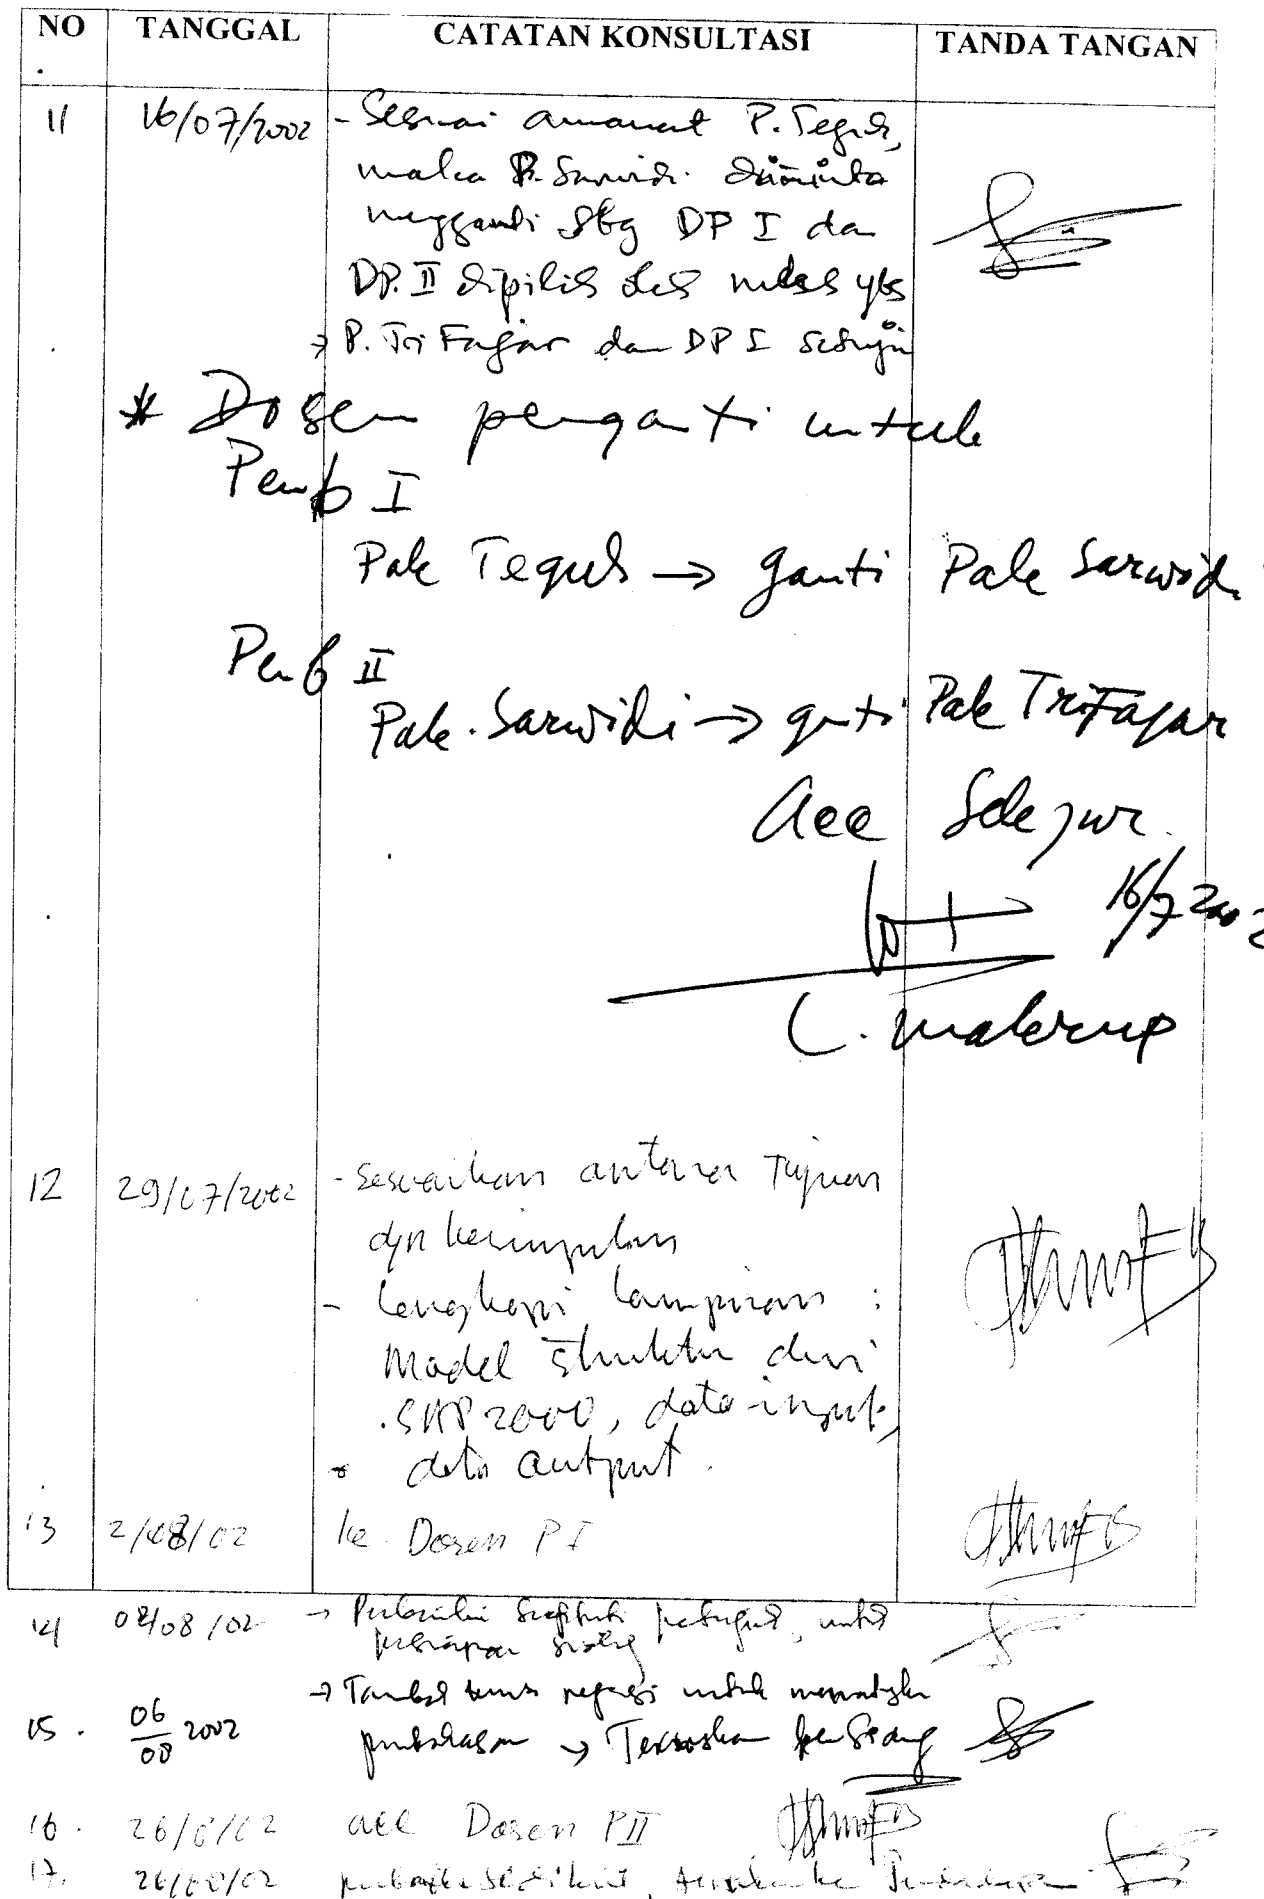 NO TANGGAL CATATAN KONSULTASI TANDA TANGAN
11 16/07/2002 - Sesuai amanat P. Teguh,
maka P. Sarwidi diminta
mengganti sbg DP I da
DP. II dipilih oleh mhs ybs
→ P. Tri Fajar dan DP I setuju
* Dosen penganti untuk
Pemb I
Pak Teguh → ganti Pak Sarwidi
Pemb II
Pak. Sarwidi → ganti Pak Tri Fajar
acc Sekjur.
16/7 2002
12 29/07/2002 - Sesuaikan antara Tujuan
dgn kesimpulan
- Lengkapi lampiran :
Model Struktur dari
SAP 2000, data input,
data output.
13 2/08/02 ke Dosen P I
14 08/02 → untuk
15. 06/08 2002 → untuk
pembahasan → Teruskan
16. 26/8/02 acc Dosen P II
17. 26/08/02 sedikit,